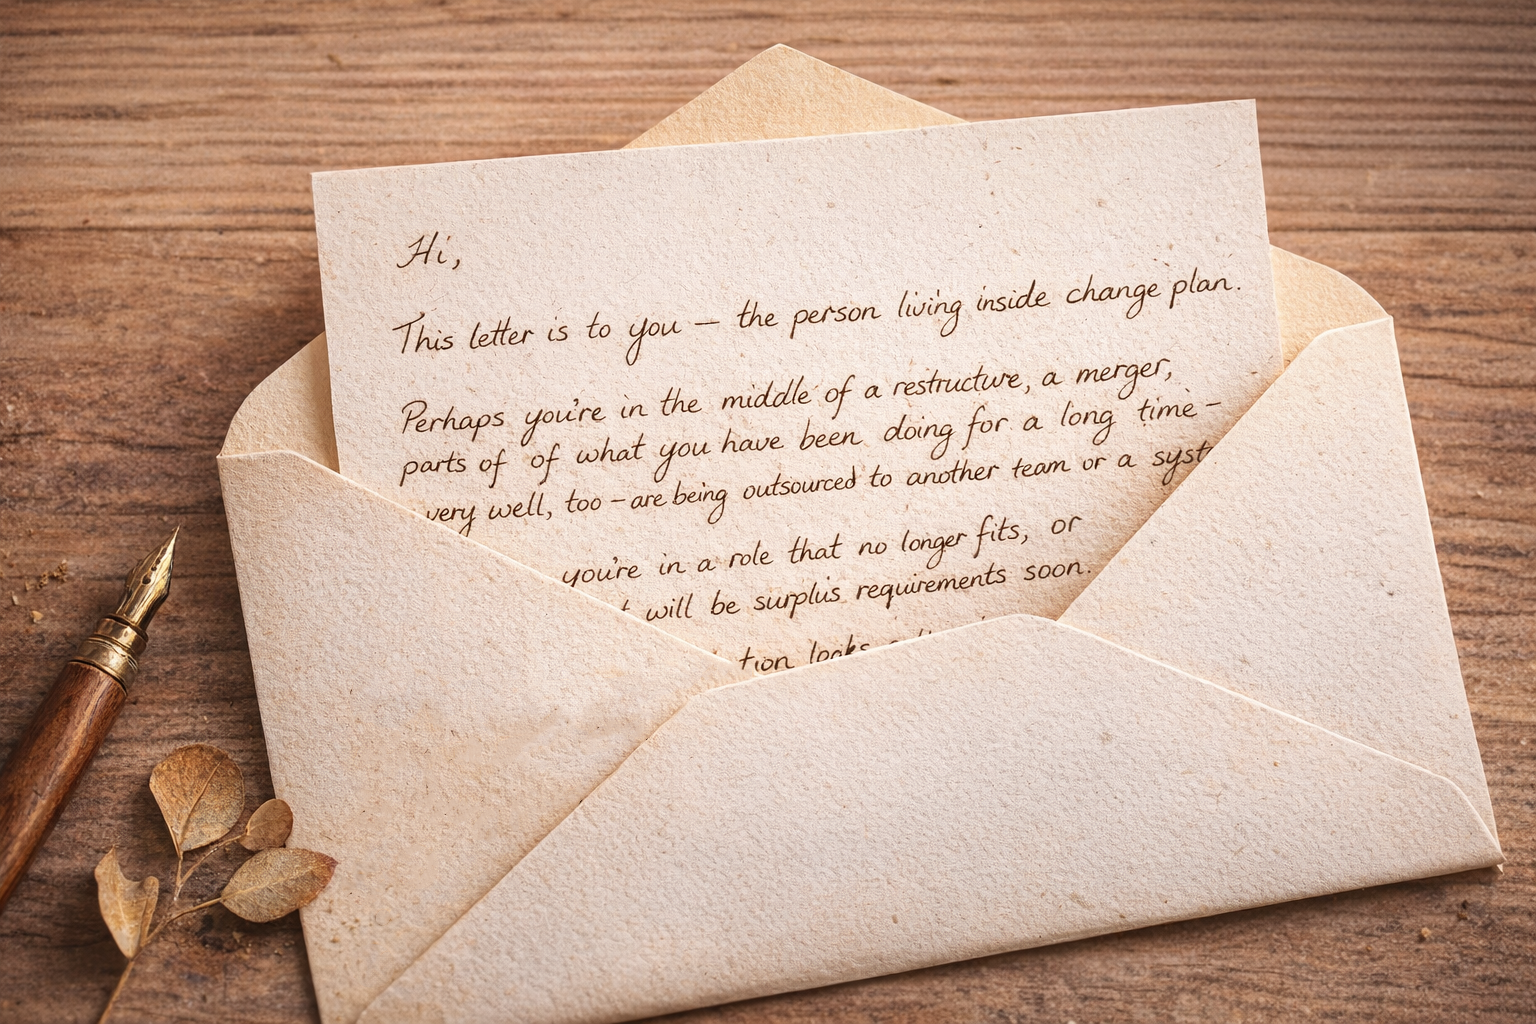 Hi,
This letter is to you — the person living inside change plan.
Perhaps you're in the middle of a restructure, a merger,
parts of of what you have been doing for a long time –
very well, too – are being outsourced to another team or a
you're in a role that no longer fits, or
will be surplus requirements soon.
looks